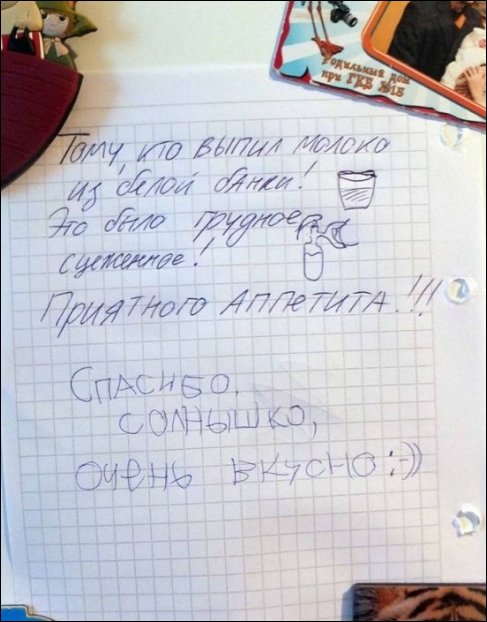 Родильный дом
при ГКБ №15
Тому, кто выпил молоко
из белой банки!
Это было грудное
сцеженное!
Приятного аппетита!!!
Спасибо,
солнышко,
очень вкусно :-))